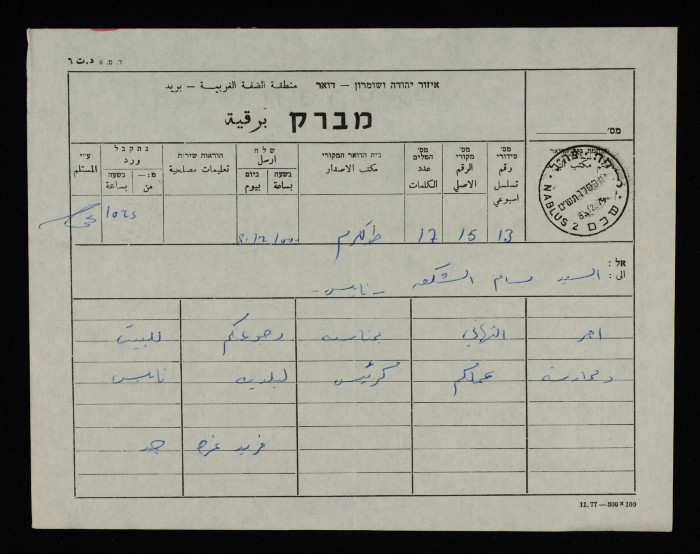 ד.מ. 6 د.ت ٦
איזור יהודה ושומרון — דואר منطقة الضفة الغربية — بريد
מברק برقية
מס׳
מס׳ סידורי رقم تسلسل اسبوعي
מס׳ מקורי الرقم الاصلي
מס׳ המלים عدد الكلمات
בית הדואר המקורי مكتب الاصدار
שלח ارسل
ביום بيوم
בשעה بساعة
הוראות שירות تعليمات مصلحية
נתקבל ورد
מ:— من
בשעה بساعة
ע״י المستلم
NABLUS 2 שכם
13 15 17 طولكرم 1000 1025
אל :
الى : السيد بسام الشكعه - نابلس -
احر التهاني بمناسبة رجوعكم للبيت
ومزاولة عملكم كرئيس لبلدية نابلس
فريد
11.77—500×100